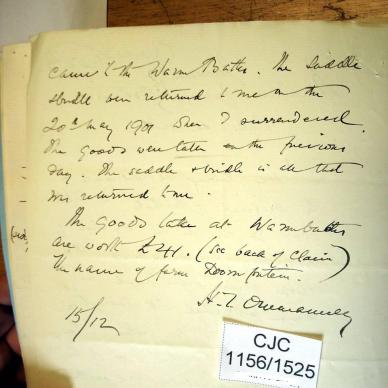 came to the Warm Baths. The Saddle
& bridle were returned to me on the
20th May 1901 when I surrendered.
The goods were taken on the previous
day. The saddle & bridle is all that
was returned to me.
The goods taken at Warmbaths
are worth £41. (see back of claim)
The name of farm Doornfontein.
15/12
CJC
1156/1525